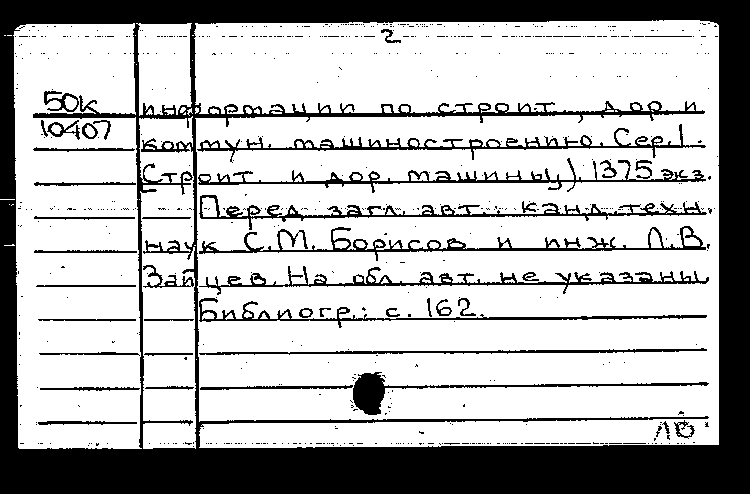 2
50к информации по строит., дор и
10407 коммун. машиностроению. Сер.1.
Строит. и дор. машины). 1375 экз.
Перед загл. авт.: канд. техн.
наук С.М. Борисов и инж. Л.В.
Зайцев. На обл. авт. не указаны
Библиогр.: с. 162.